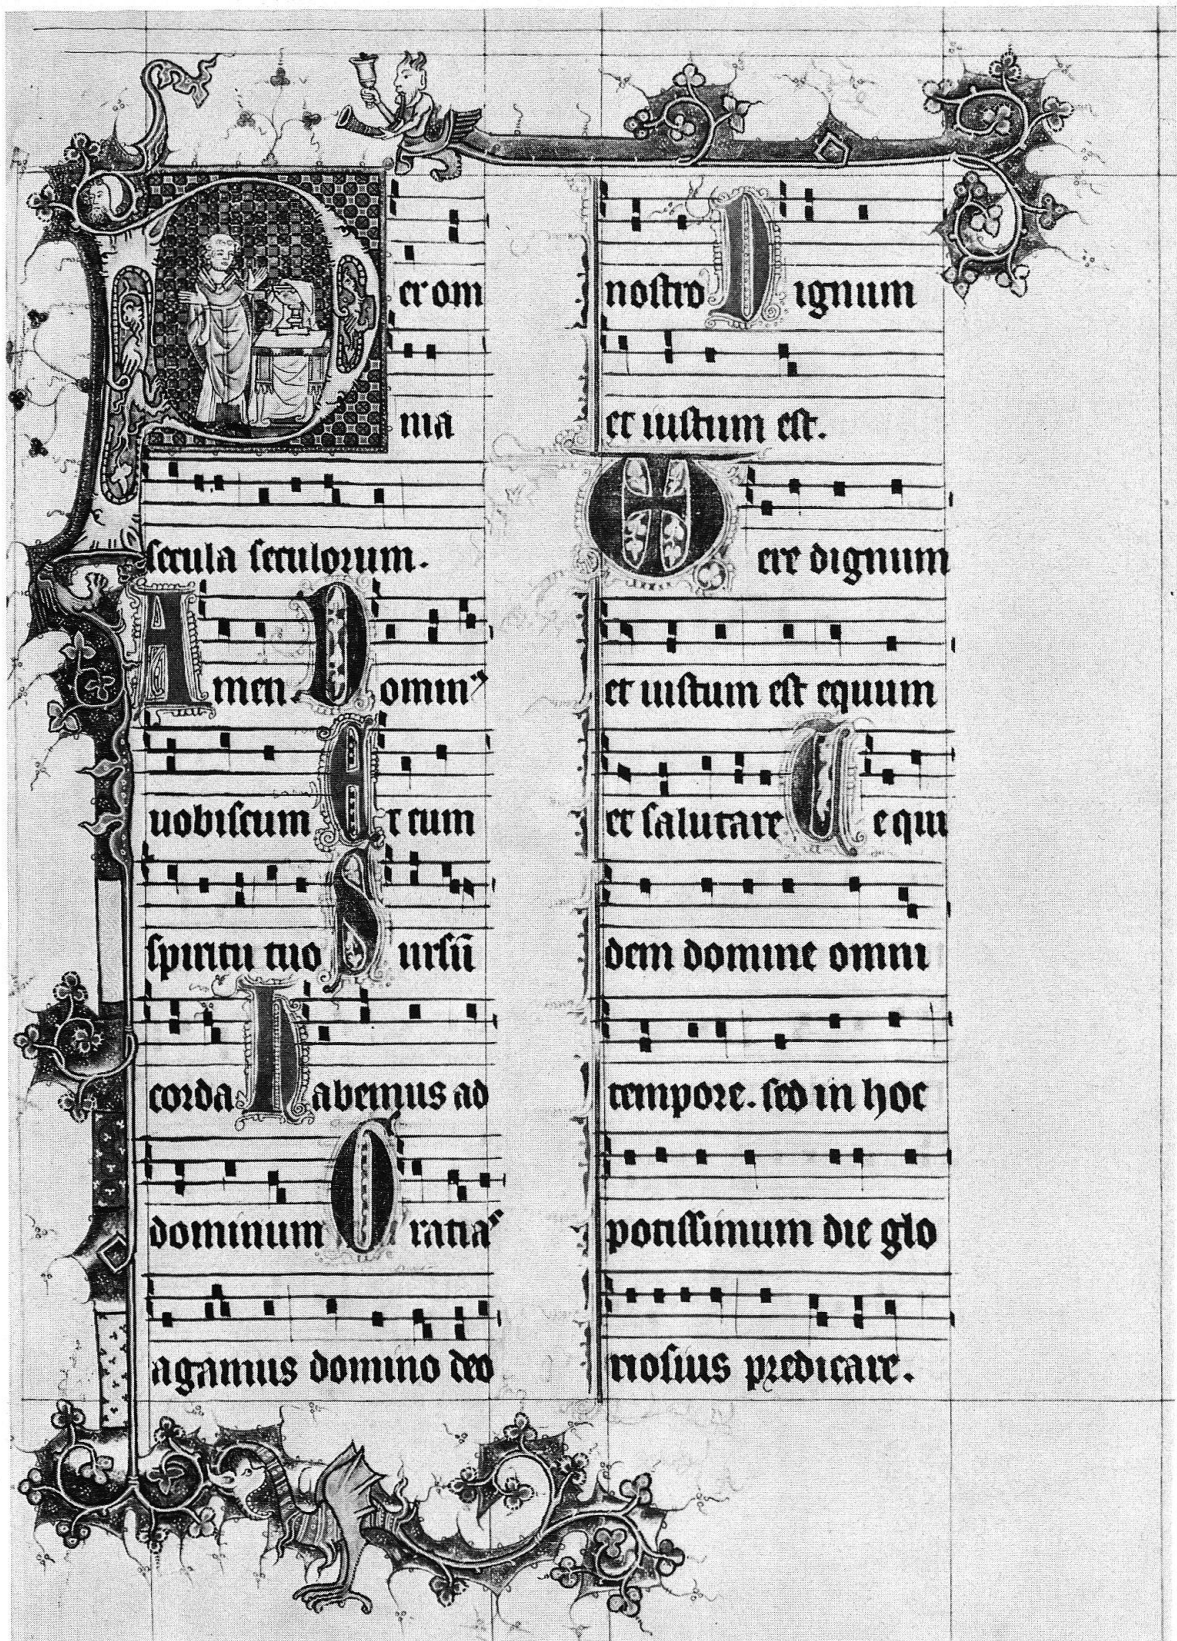 Per om
nia
secula seculorum.
Amen. Dominꝰ
uobiscum Et cum
spiritu tuo Sursū
corda Habemus ad
dominum Gratias
agamus domino deo
nostro Dignum
et iustum est.
Vere dignum
et iustum est equum
et salutare Te qui
dem domine omni
tempore. sed in hoc
potissimum die glo
riosius predicare.